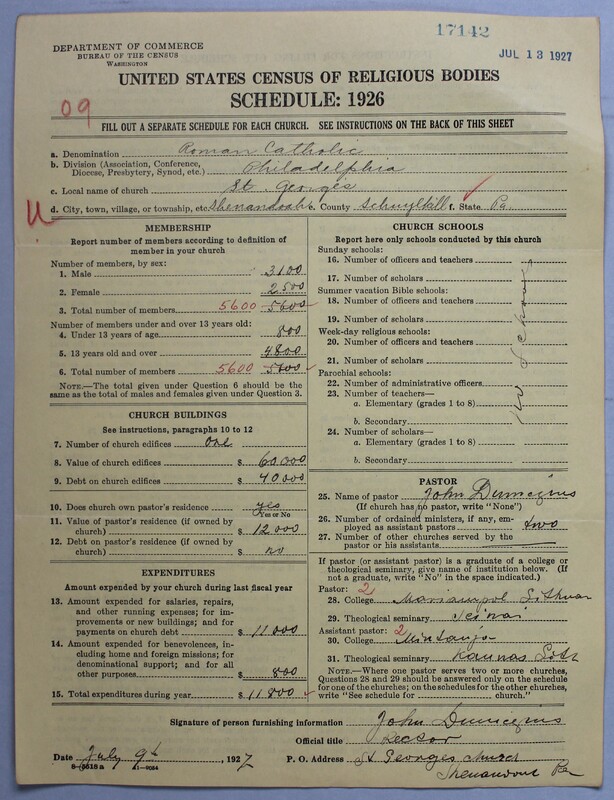 17142
DEPARTMENT OF COMMERCE
BUREAU OF THE CENSUS
WASHINGTON
JUL 13 1927
UNITED STATES CENSUS OF RELIGIOUS BODIES
SCHEDULE: 1926
09
FILL OUT A SEPARATE SCHEDULE FOR EACH CHURCH. SEE INSTRUCTIONS ON THE BACK OF THIS SHEET
a. Denomination Roman Catholic
b. Division (Association, Conference, Diocese, Presbytery, Synod, etc.) Philadelphia
c. Local name of church St. Georges
d. City, town, village, or township, etc. Shenandoah e. County Schuylkill f. State Pa.
MEMBERSHIP
Report number of members according to definition of
member in your church
Number of members, by sex:
1. Male 3100
2. Female 2500
3. Total number of members 5600 5600
Number of members under and over 13 years old:
4. Under 13 years of age 800
5. 13 years old and over 4800
6. Total number of members 5600 5600
NOTE.—The total given under Question 6 should be
the same as the total of males and females given under Question 3.
CHURCH BUILDINGS
See instructions, paragraphs 10 to 12
7. Number of church edifices one
8. Value of church edifices $ 60000
9. Debt on church edifices $ 40000
10. Does church own pastor's residence yes
Yes or No
11. Value of pastor's residence (if owned by
church) $ 12000
12. Debt on pastor's residence (if owned by
church) $ no
EXPENDITURES
Amount expended by your church during last fiscal year
13. Amount expended for salaries, repairs,
and other running expenses; for im-
provements or new buildings; and for
payments on church debt $ 11000
14. Amount expended for benevolences,
including home and foreign missions; for
denominational support; and for all
other purposes $ 800
15. Total expenditures during year $ 11800
CHURCH SCHOOLS
Report here only schools conducted by this church
Sunday schools:
16. Number of officers and teachers
17. Number of scholars
Summer vacation Bible schools:
18. Number of officers and teachers
19. Number of scholars
Week-day religious schools:
20. Number of officers and teachers
21. Number of scholars
Parochial schools:
22. Number of administrative officers
23. Number of teachers—
a. Elementary (grades 1 to 8)
b. Secondary
24. Number of scholars—
a. Elementary (grades 1 to 8)
b. Secondary
no school
PASTOR
25. Name of pastor John
(If church has no pastor, write "None")
26. Number of ordained ministers, if any, em-
ployed as assistant pastors two
27. Number of other churches served by the
pastor or his assistants
If pastor (or assistant pastor) is a graduate of a college or
theological seminary, give name of institution below. (If
not a graduate, write "No" in the space indicated.)
Pastor: 2
28. College
29. Theological seminary Seinai
Assistant pastor: 2
30. College
31. Theological seminary Kaunas
NOTE.—Where one pastor serves two or more churches,
Questions 28 and 29 should be answered only on the schedule
for one of the churches; on the schedules for the other churches,
write "See schedule for church."
Signature of person furnishing information John
Official title Rector
Date July 9th, 1927 P. O. Address St Georges church
Pa